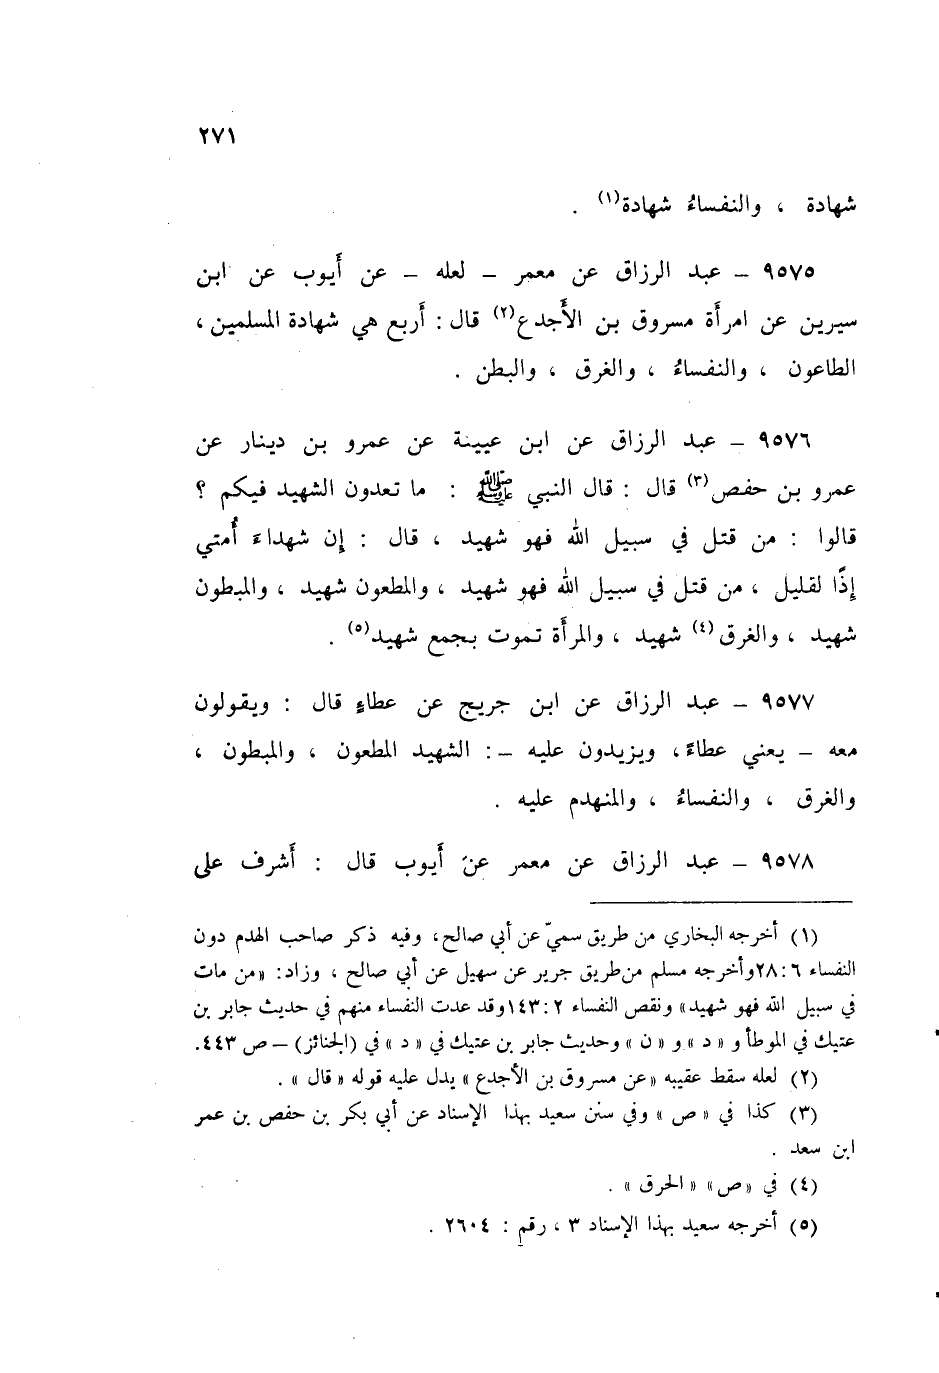 ٢٧١
شهادة ، والنفساءُ شهادة(١) .
٩٥٧٥ – عبد الرزاق عن معمر – لعله – عن أَيوب عن ابن
سيرين عن امرأَة مسروق بن الأَجدع(٢) قال : أَربع هي شهادة المسلمين ،
الطاعون ، والنفساءُ ، والغرق ، والبطن .
٩٥٧٦ – عبد الرزاق عن ابن عيينة عن عمرو بن دينار عن
عمرو بن حفص(٣) قال : قال النبي ﷺ : ما تعدون الشهيد فيكم ؟
قالوا : من قتل في سبيل الله فهو شهيد ، قال : إن شهداءَ أُمتي
إذًا لقليل ، من قتل في سبيل الله فهو شهيد ، والمطعون شهيد ، والمبطون
شهيد ، والغرق(٤) شهيد ، والمرأَة تموت بجمع شهيد(٥) .
٩٥٧٧ – عبد الرزاق عن ابن جريج عن عطاءٍ قال : ويقولون
معه – يعني عطاءً ، ويزيدون عليه – : الشهيد المطعون ، والمبطون ،
والغرق ، والنفساءُ ، والمنهدم عليه .
٩٥٧٨ – عبد الرزاق عن معمر عن أَيوب قال : أَشرف على
(١) أخرجه البخاري من طريق سميّ عن أبي صالح ، وفيه ذكر صاحب الهدم دون
النفساء ٦ : ٢٨ وأخرجه مسلم من طريق جرير عن سهيل عن أبي صالح ، وزاد : «من مات
في سبيل الله فهو شهيد» ونقص النفساء ٢ : ١٤٣ وقد عدت النفساء منهم في حديث جابر بن
عتيك في الموطأ و « د » و « ن » وحديث جابر بن عتيك في « د » في (الجنائز) – ص ٤٤٣.
(٢) لعله سقط عقيبه «عن مسروق بن الأجدع» يدل عليه قوله «قال» .
(٣) كذا في « ص » وفي سنن سعيد بهذا الإسناد عن أبي بكر بن حفص بن عمر
ابن سعد .
(٤) في «ص» « الحرق » .
(٥) أخرجه سعيد بهذا الإسناد ٣ ، رقم : ٢٦٠٤ .